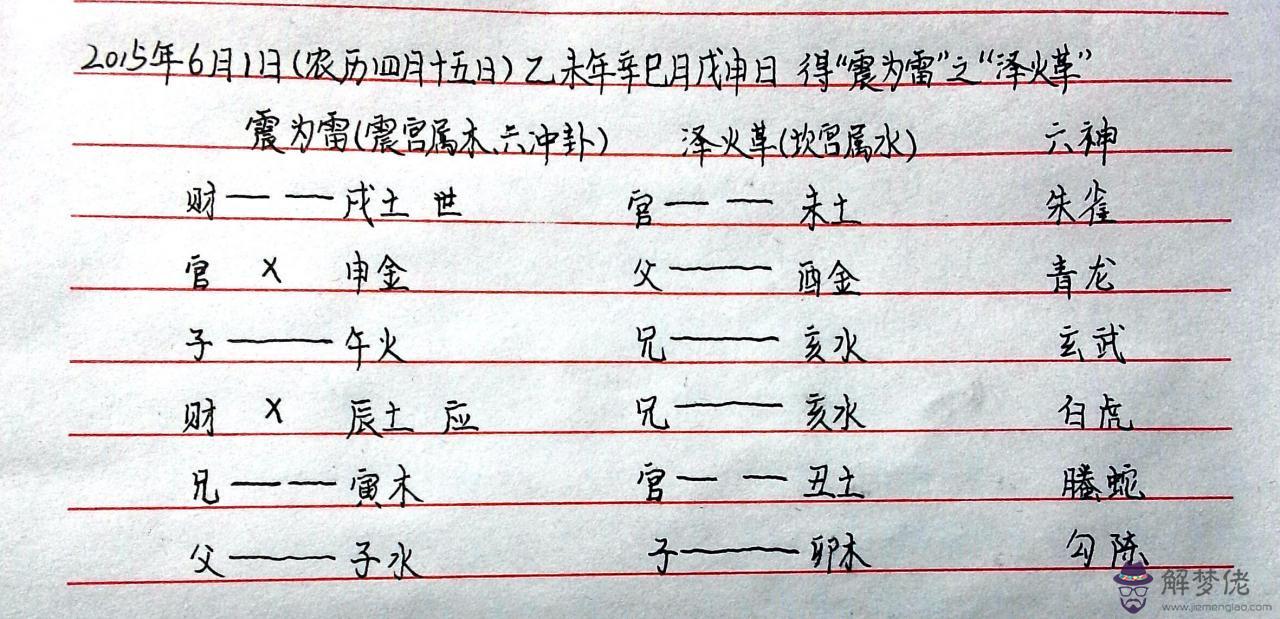 2015年6月1日(农历四月十五日)乙未年辛巳月戊申日 得“震为雷”之“泽火革”
震为雷(震宫属木、六冲卦) 泽火革(坎宫属水) 六神
财 — — 戌土 世 官 — — 未土 朱雀
官 X 申金 父 —— 酉金 青龙
子 —— 午火 兄 —— 亥水 玄武
财 X 辰土 应 兄 —— 亥水 白虎
兄 — — 寅木 官 — — 丑土 螣蛇
父 —— 子水 子 —— 卯木 勾陈
解梦佬
www.jiemenglao.com